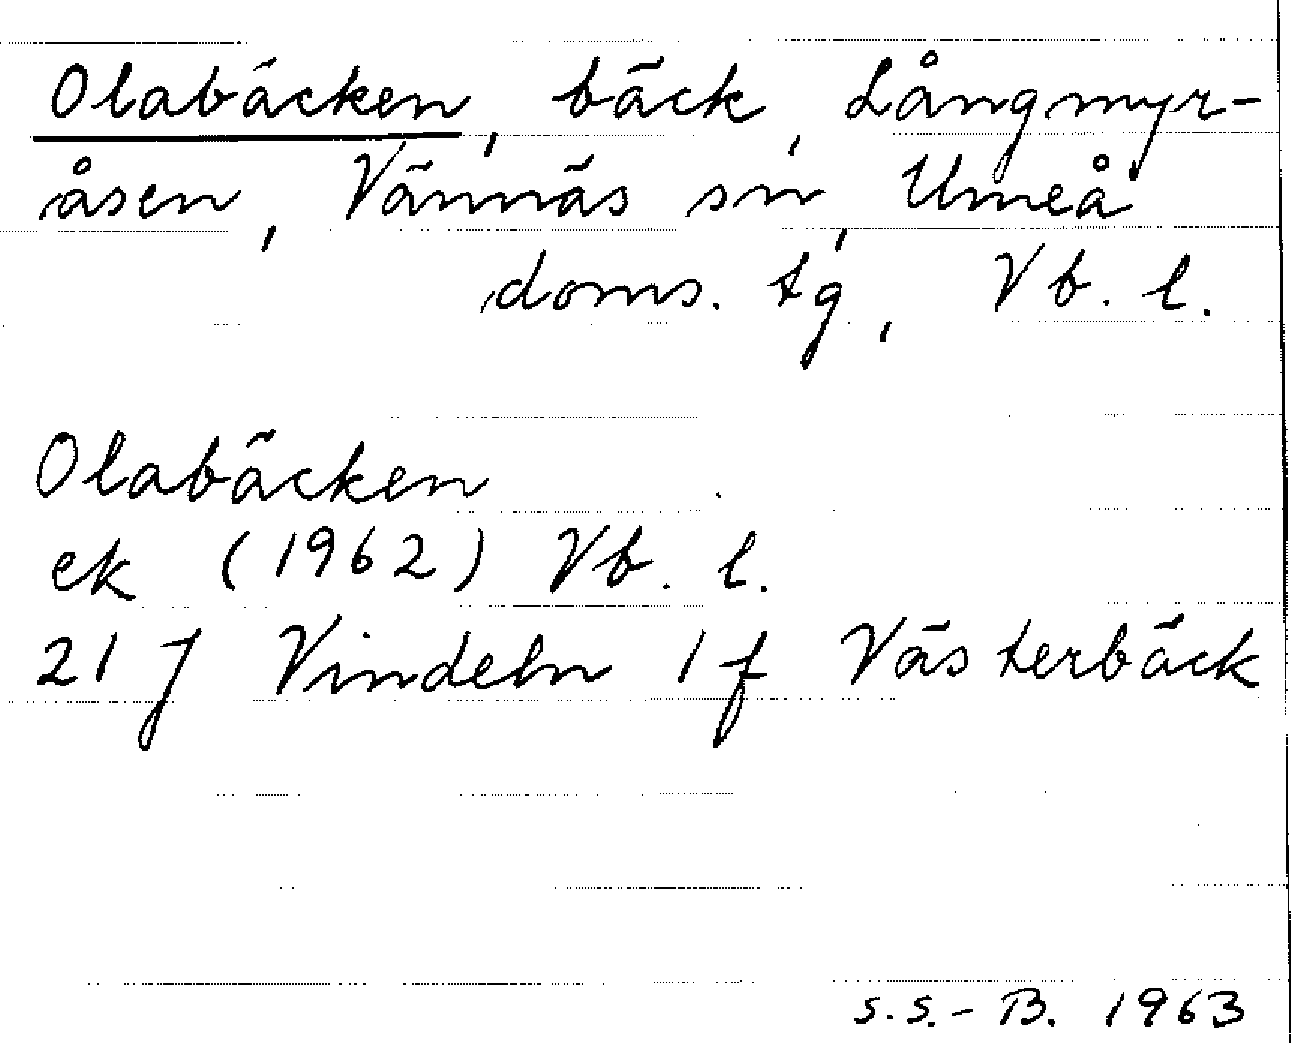 Olabäcken, bäck, Långmyr-
åsen, Vännäs sn, Umeå
doms. tg, Vb. l.
Olabäcken
ek (1962) Vb. l.
21 J Vindeln 1 f Västerbäck
s.s.-B. 1963